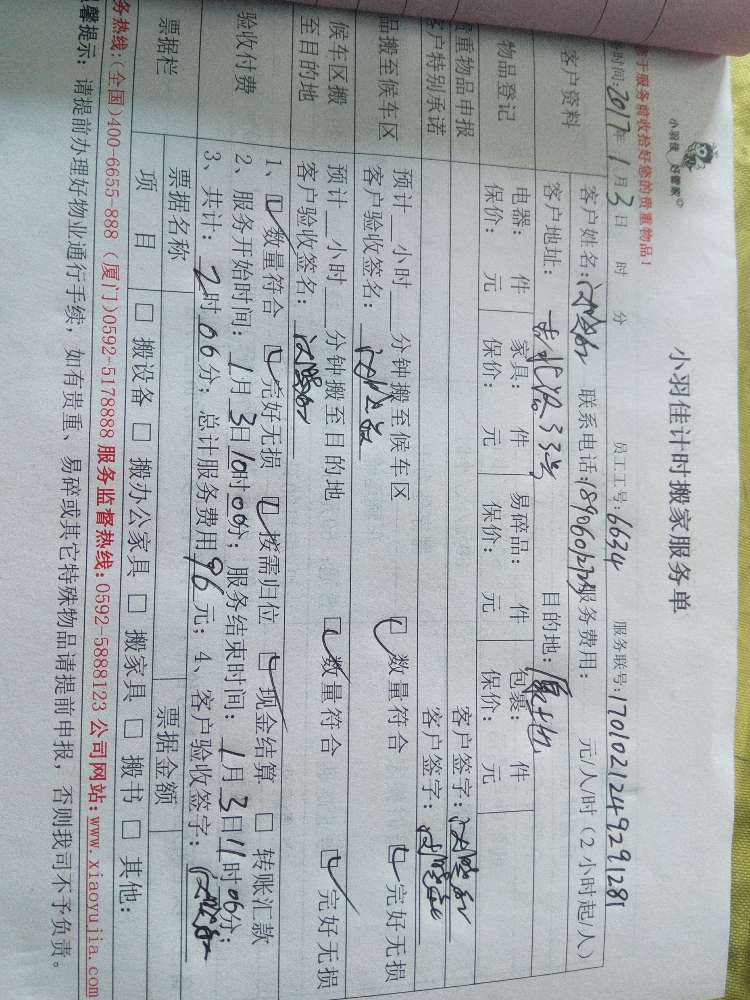 小羽佳 好管家
于服务前收拾好您的贵重物品!
小羽佳计时搬家服务单
时间:2017年1月3日 时 分 员工工号:6634 服务联号:170102124929128
客户资料
客户姓名: 联系电话: 服务费用: 元/人/时(2小时起/人)
客户地址: 33号 目的地:原地
物品登记
电器: 件 家具: 件 易碎品: 件 包裹: 件
保价: 元 保价: 元 保价: 元 保价: 元
贵重物品申报 客户签字:
客户特别承诺 客户签字:
品搬至候车区
预计__小时__分钟搬至候车区 数量符合 完好无损
客户验收签名:
候车区搬至目的地
预计__小时__分钟搬至目的地 数量符合 完好无损
客户验收签名:
验收付费
1、 数量符合 完好无损 按需归位 现金结算 □ 转账汇款
2、服务开始时间:1月3日10时00分;服务结束时间:1月3日11时06分;
3、共计:2时06分;总计服务费用96元;4、客户验收签字:
票据栏 票据名称 票据金额
项 目 □ 搬设备 □ 搬办公家具 □ 搬家具 □ 搬书 □ 其他:
务热线:(全国)400-6655-888(厦门)0592-5178888 服务监督热线:0592-5888123 公司网站:www.xiaoyujia.com
馨提示:请提前办理好物业通行手续,如有贵重、易碎或其它特殊物品请提前申报,否则我司不予负责。